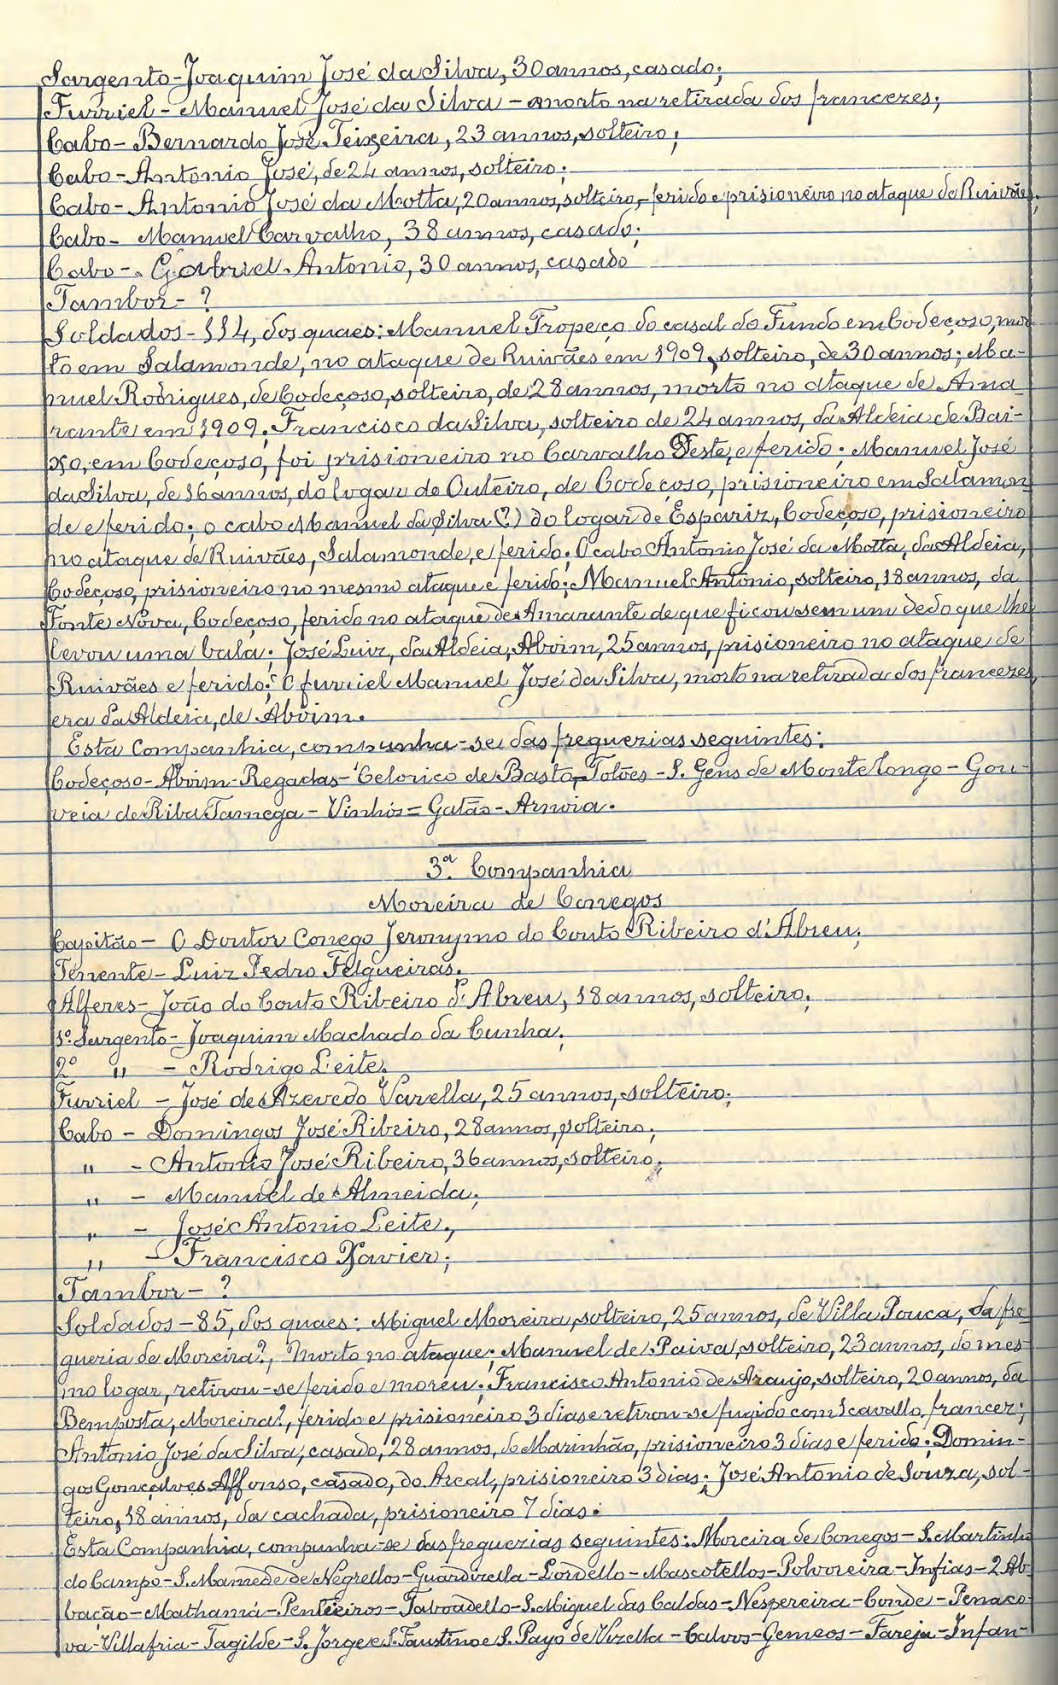 Sargento-Joaquim José da Silva, 30 annos, casado;
Furriel - Manuel José da Silva - morto na retirada dos francezes;
Cabo - Bernardo José Teixeira, 23 annos, solteiro;
Cabo - Antonio José, de 24 annos, solteiro;
Cabo - Antonio José da Motta, 20 annos, solteiro, - ferido e prisioneiro no ataque de Ruivães;
Cabo - Manuel Carvalho, 38 annos, casado;
Cabo - Gabriel Antonio, 30 annos, casado
Tambor - ?
Soldados - 114, dos quaes: Manuel Tropeço do casal do Fundo em Codeçoso, mor-
to em Salamonde, no ataque de Ruivães em 1909, solteiro, de 30 annos; Ma-
nuel Rodrigues, de Codeçoso, solteiro, de 28 annos, morto no ataque de Ama
rante em 1909; Francisco da Silva, solteiro de 24 annos, da Aldeia de Bai-
xo, em Codeçoso, foi prisioneiro no Carvalho D'Este, e ferido; Manuel José
da Silva, de 16 annos, do logar do Outeiro, de Codeçoso, prisioneiro em Salamon
de e ferido; o cabo Manuel da Silva (?) do logar de Espariz, Codeçoso, prisioneiro
no ataque de Ruivães, Salamonde, e ferido; O cabo Antonio José da Motta, da Aldeia,
Codeçoso, prisioneiro no mesmo ataque e ferido; Manuel Antonio, solteiro, 18 annos, da
Fonte Nova, Codeçoso, ferido no ataque de Amarante de que ficou sem um dedo que lhe
levou uma bala; José Luiz, da Aldeia, Aboim, 25 annos, prisioneiro no ataque de
Ruivães e ferido; O furriel Manuel José da Silva, morto na retirada dos francezes,
era da Aldeia, de Aboim.
Esta Companhia, compunha-se das freguezias seguintes:
Codeçoso - Aboim - Regadas - Celorico de Basto, Tolões - S. Gens de Montelongo - Gou-
veia de Riba Tamega - Vinhós = Gatão - Arnoia.
3ª Companhia
Moreira de Conegos
Capitão - O Doutor Conego Jeronymo do Couto Ribeiro d'Abreu;
Tenente - Luiz Pedro Felgueiras.
Alferes - João do Couto Ribeiro d'Abreu, 18 annos, solteiro;
1º Sargento - Joaquim Machado da Cunha;
2º " - Rodrigo Leite;
Furriel - José de Azevedo Varella, 25 annos, solteiro;
Cabo - Domingos José Ribeiro, 28 annos, solteiro;
" - Antonio José Ribeiro, 36 annos, solteiro;
" - Manuel de Almeida;
" - José Antonio Leite;
" - Francisco Xavier;
Tambor - ?
Soldados - 85, dos quaes: Miguel Moreira, solteiro, 25 annos, de Villa Pouca, da fre
guezia de Moreira?, morto no ataque; Manuel de Paiva, solteiro, 23 annos, do mes-
mo logar, retirou-se ferido e moreu; Francisco Antonio de Araujo, solteiro, 20 annos, da
Bemposta, Moreira?, ferido e prisioneiro 3 dias e retirou-se fugido com 1 cavallo francez;
Antonio José da Silva; casado, 28 annos, do Marinhão, prisioneiro 3 dias e ferido; Domin-
gos Gonçalves Affonso, casado, do Arcal, prisioneiro 3 dias; José Antonio de Souza, sol-
teiro, 18 annos, da cachada, prisioneiro 7 dias.
Esta Companhia, compunha-se das freguezias seguintes: Moreira de Conegos - S. Martinho
do Campo - S. Mamede de Negrellos - Guardizella - Lordello - Mascotellos - Polvoreira - Infias - 2 Ab
bação - Mathamá - Penteeiros - Taboadello - S. Miguel das Caldas - Nespereira - Conde - Penaco
va - Villafria - Tagilde - S. Jorge e S. Faustino e S. Payo de Vizella - Calvos - Gemeos - Fareja - Infan-